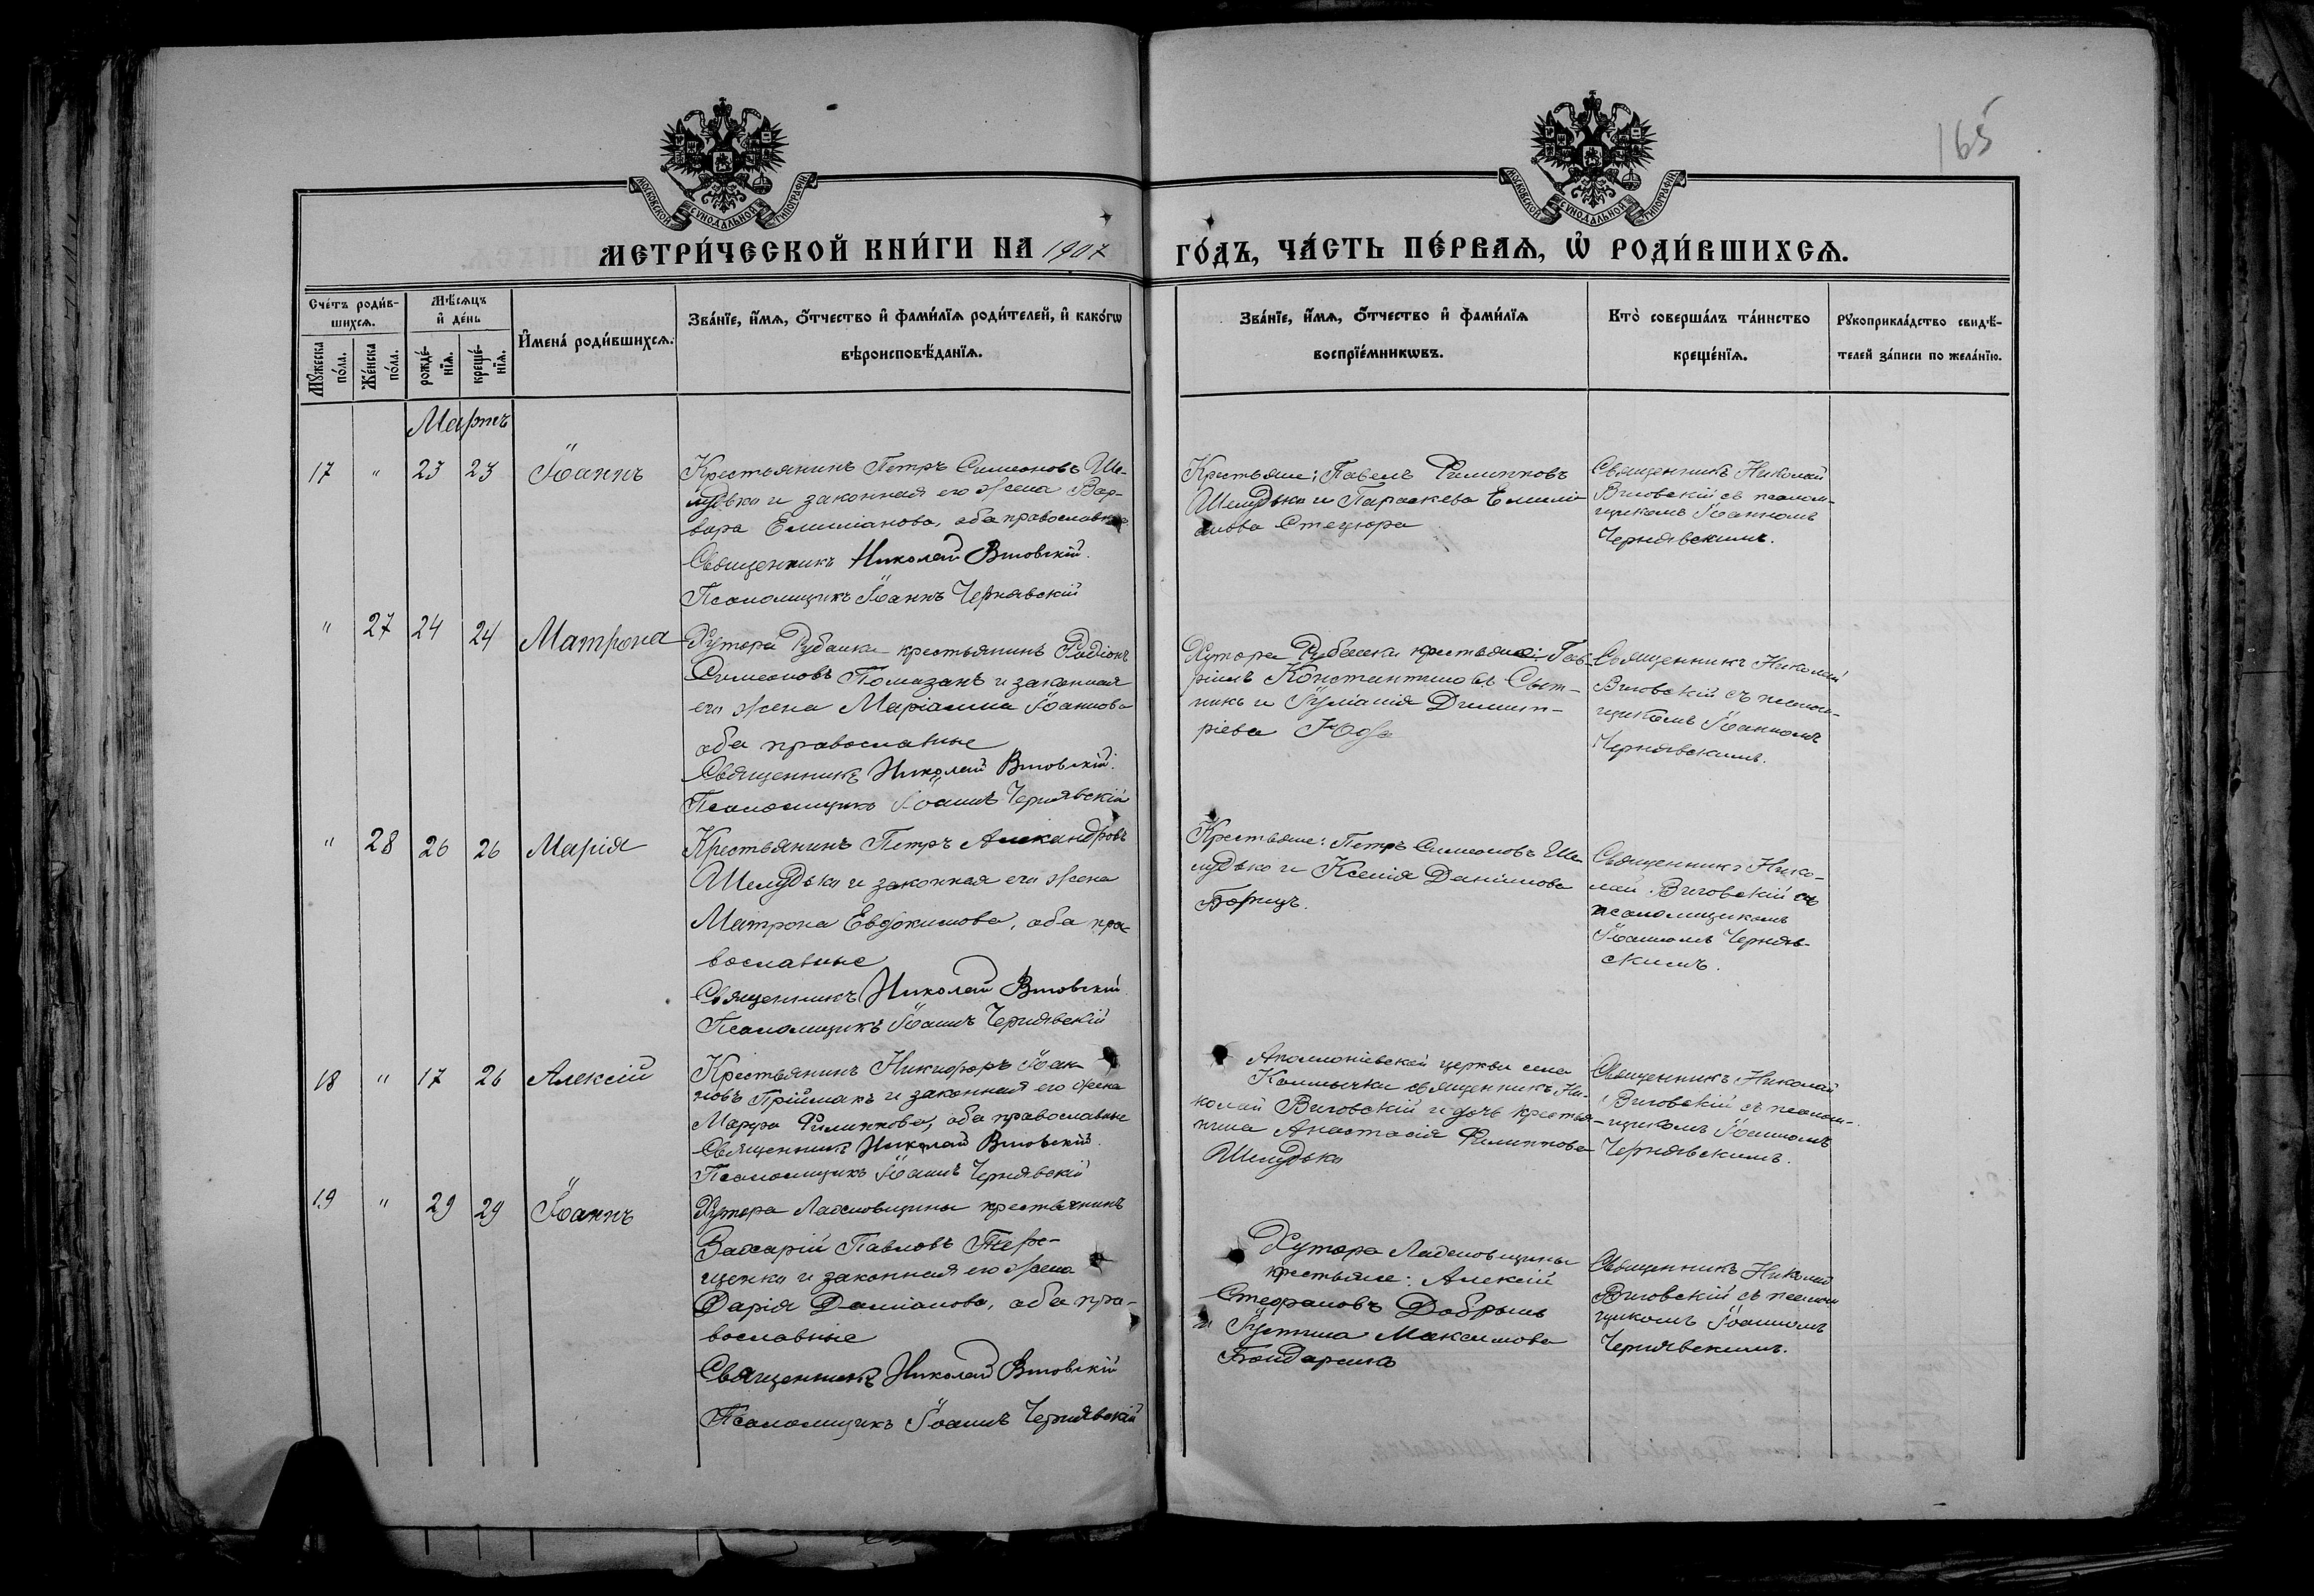 165
МОСКОВСКОЙ СУНОДАЛЬНОЙ ТИПОГРАФІИ
МОСКОВСКОЙ СУНОДАЛЬНОЙ ТИПОГРАФІИ
МЕТРИ́ЧЕСКОЙ КНИ́ГИ НА 1907
ГО́ДЪ, ЧА́СТЬ ПЕ́РВАѦ, Ѡ҆ РОДИ́ВШИХСѦ.
Сче́тъ роди́в-
шихсѧ.
Мѣ́сѧцъ
и҆ де́нь
Мꙋ́жеска
по́ла.
Же́нска
по́ла.
рожде́-
нїѧ.
креще́-
нїѧ.
И҆мена̀ роди́вшихсѧ.
Зва́нїе, и҆́мѧ, ѻ҆́тчество и҆ фами́лїѧ роди́телей, и҆ како́гѡ
вѣроисповѣ́данїѧ.
Зва́нїе, и҆́мѧ, ѻ҆́тчество и҆ фами́лїѧ
воспрїе́мникѡвъ.
Кто̀ соверша́лъ та́инство
креще́нїѧ.
Рꙋкоприкла́дство свидѣ́-
телей за́писи по жела́нїю.
Мартъ
17 " 23 23 Іоаннъ
Крестьянинъ Петръ Симеоновъ Ше-
лудько и законная его жена Вар-
вара Емиліанова, оба православные
Священникъ Николай Виговскій.
Псаломщикъ Іоаннъ Чернявскій
Крестьяне: Павелъ Филипповъ
Шелудько и Параскева Емилі-
анова Стецюра
Священникъ Николай
Виговскій съ псалом-
щикомъ Іоанномъ
Чернявскимъ.
" 27 24 24 Матрона
Хутора Рубанки крестьянинъ Родіонъ
Симеоновъ Помазанъ и законная
его жена Маріанна Іоаннова
оба православные
Священникъ Николай Виговскій.
Псаломщикъ Іоаннъ Чернявскій
Хутора Рубанки крестьяне: Гав-
ріилъ Константиновъ Сыт-
никъ и Іуліанія Димит-
ріева
Священникъ Николай
Виговскій съ псалом-
щикомъ Іоанномъ
Чернявскимъ.
" 28 26 26 Марія
Крестьянинъ Петръ Александровъ
Шелудько и законная его жена
Матрона Евдокимова, оба пра-
вославные
Священникъ Николай Виговскій
Псаломщикъ Іоаннъ Чернявскій
Крестьяне: Петръ Симеоновъ Ше-
лудько и Ксенія Даніилова
Борецъ.
Священникъ Нико-
лай Виговскій съ
псаломщикомъ
Іоанномъ Черняв-
скимъ.
18 " 17 26 Алексій
Крестьянинъ Никифоръ Іоан-
новъ Пріймакъ и законная его жена
Марфа Филиппова, оба православные
Священникъ Николай Виговскій.
Псаломщикъ Іоаннъ Чернявскій
церкви села
Калмычки священникъ Ни-
колай Виговскій и дочь крестья-
нина Анастасія Филиппова
Шелудько
Священникъ Николай
Виговскій съ псалом-
щикомъ Іоанномъ
Чернявскимъ.
19 " 29 29 Іоаннъ
Хутора крестьянинъ
Захарій Павловъ Тере-
щенко и законная его жена
Дарія Даміанова, оба пра-
вославные
Священникъ Николай Виговскій
Псаломщикъ Іоаннъ Чернявскій
Хутора
крестьяне: Алексій
Стефановъ Добрынь
и Іустина Максимова
Бондаренко
Священникъ Николай
Виговскій съ псалом
щикомъ Іоанномъ
Чернявскимъ.